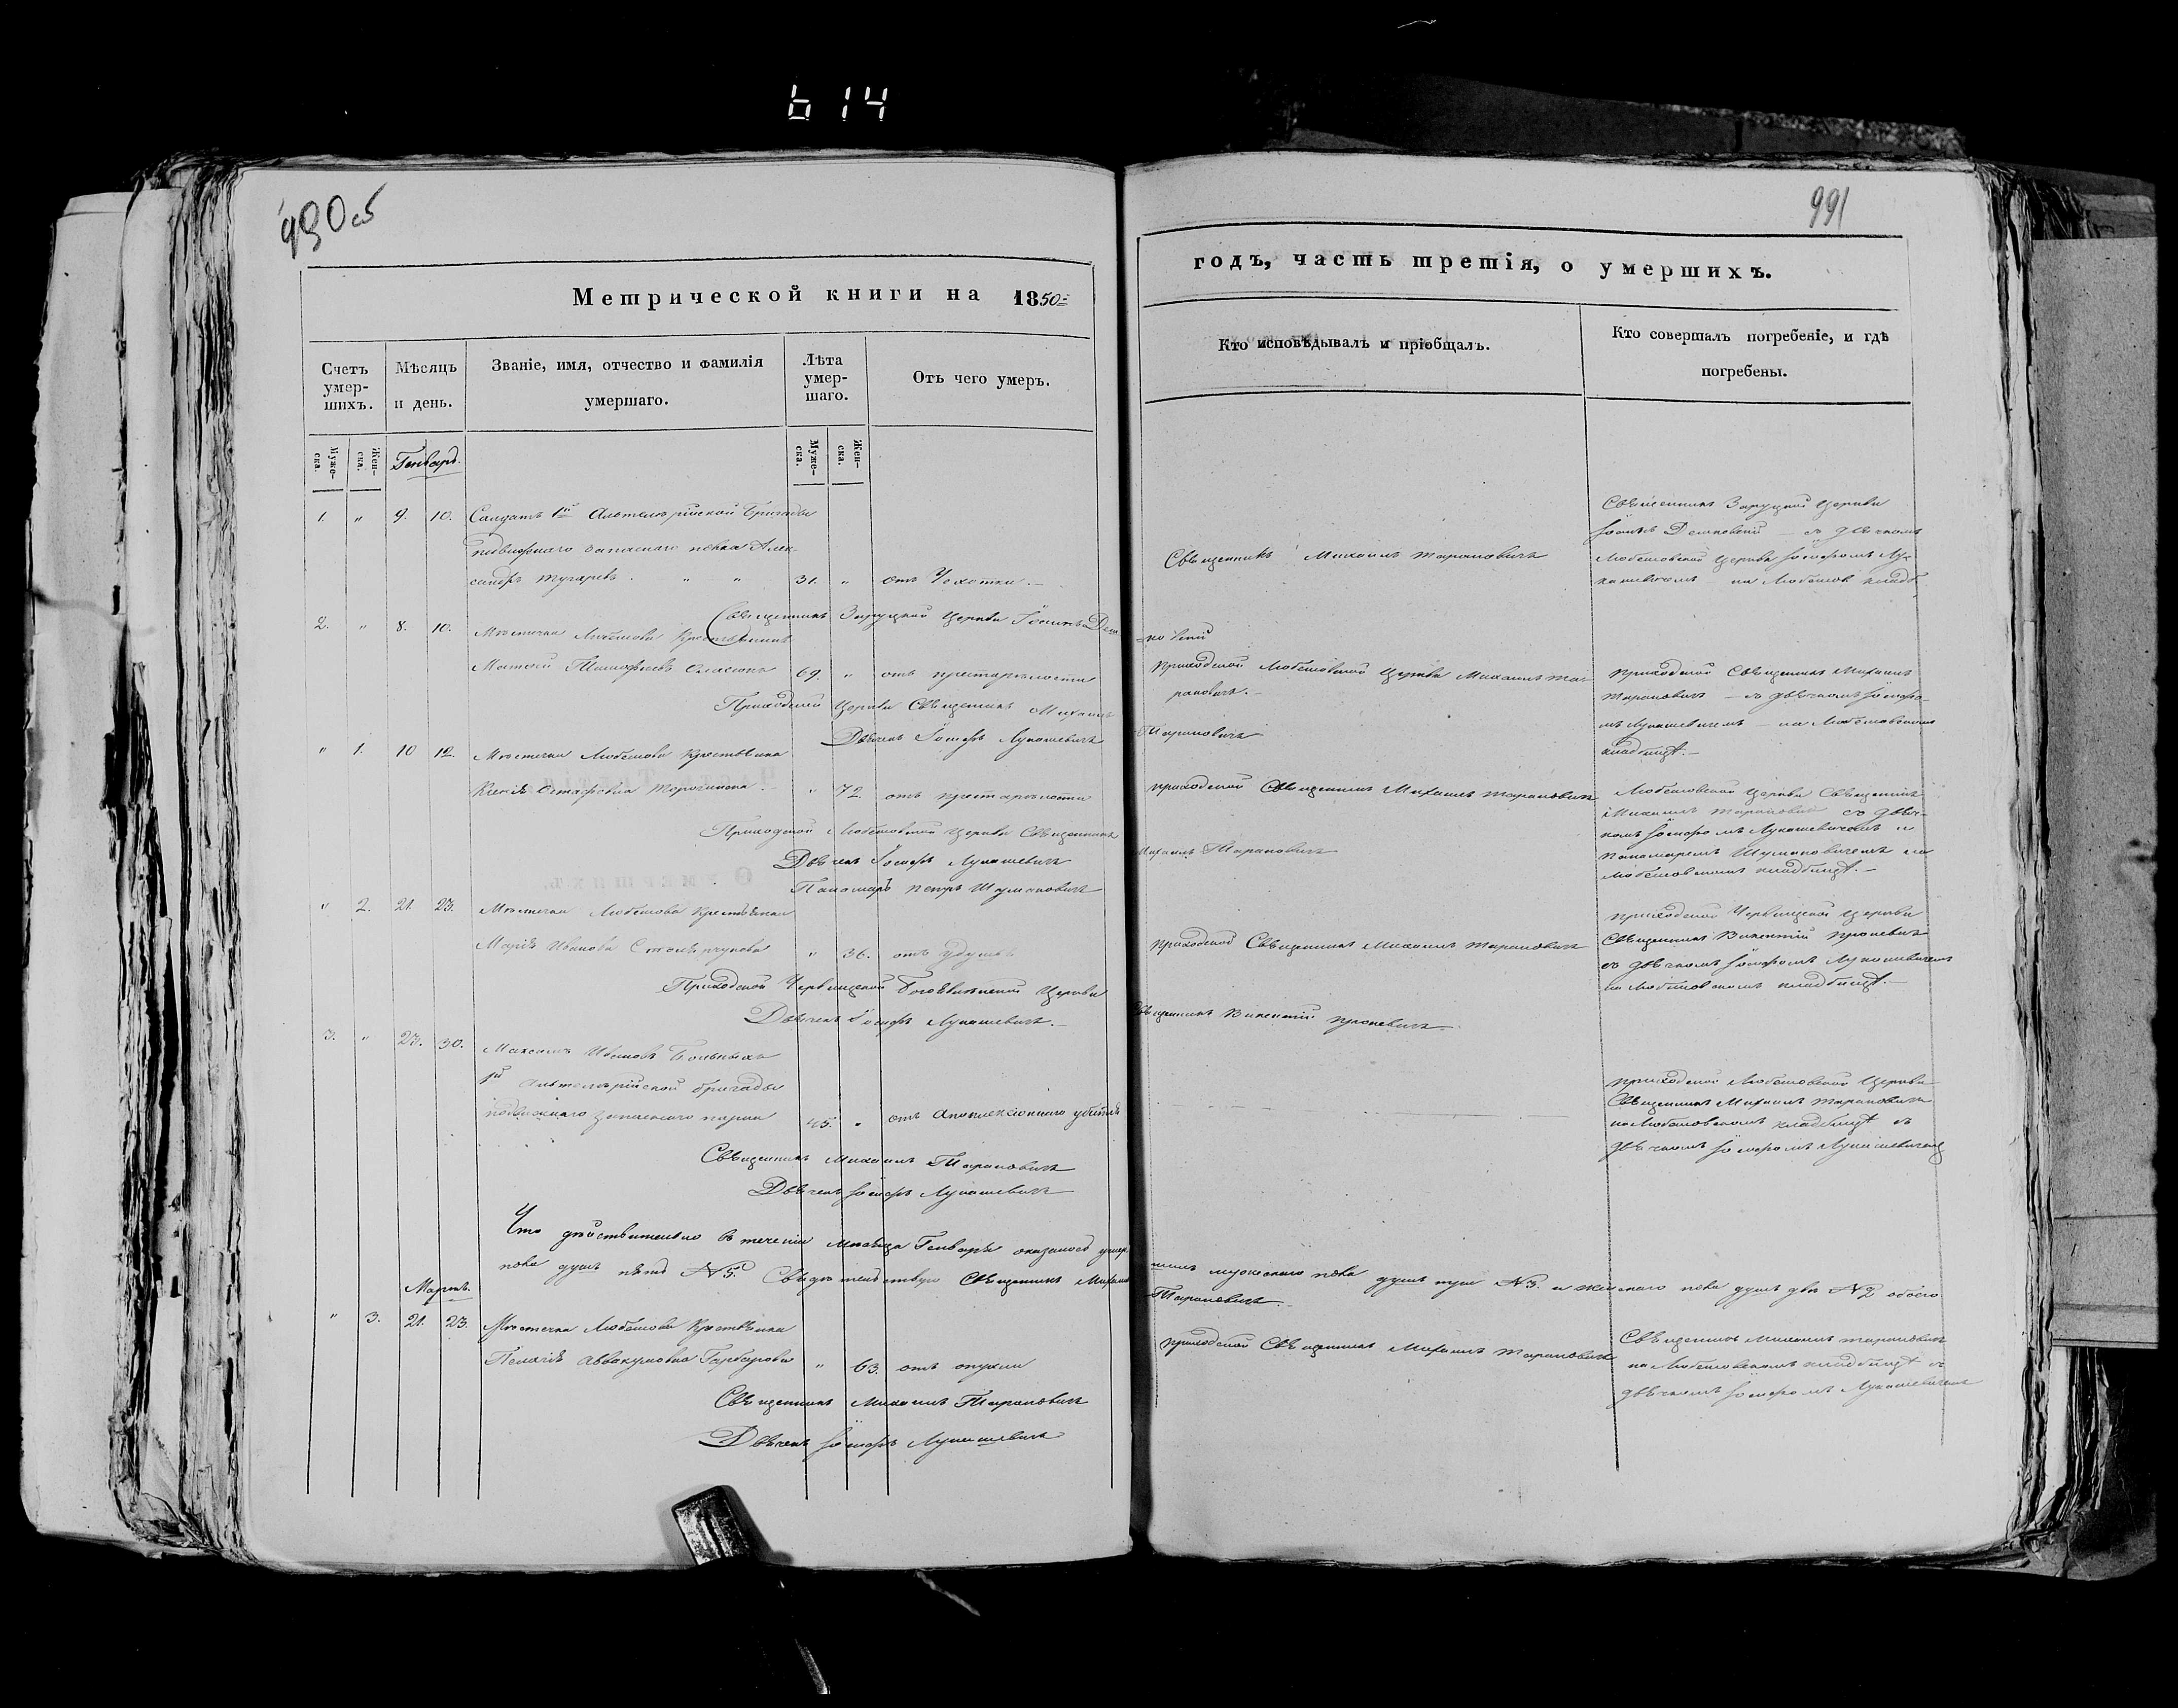 614
990 об
991
Метрической книги на 1850
годъ, часть третія, о умершихъ.
Счетъ умер-шихъ.
Мѣсяцъ и день.
Званіе, имя, отчество и фамилія умершаго.
Лѣта умер-шаго.
Отъ чего умеръ.
Кто исповѣдывалъ и пріобщалъ.
Кто совершалъ погребеніе, и гдѣ погребены.
Муже-ска.
Жен-ска.
Генварь.
Муже-ска.
Жен-ска.
1. " 9. 10. Солдатъ 1й Бригады
подвижнаго запаснаго Алек-
сандръ 31. " отъ Чахотки.
Священникъ Михаилъ Тарановичъ
Священникъ Церкви
съ дьячкомъ
Любешовской Церкви Іосифомъ Лу-
кашевичемъ на Любешов. кладб.
Священникъ Церкви
2. " 8. 10. Мѣстечка Любешова Крестьянинъ
Матфей Тимофеевъ 69. " отъ престарѣлости
Приходской Любешовской Церкви Михаилъ Та-
рановичъ.
Приходской Священникъ Михаилъ
Тарановичъ съ дьячкомъ Іосифо-
мъ Лукашевичемъ на Любешовскомъ
кладбищѣ.
Приходской Церкви Священникъ Михаилъ
Тарановичъ
Дьячекъ Іосифъ Лукашевичъ
" 1. 10 12. Мѣстечка Любешова Крестьянка
Ксенія 72. отъ престарѣлости
приходской Священникъ Михаилъ Тарановичъ
Любешовской Церкви Священникъ
Михаилъ Тарановичъ съ дьяч-
комъ Іосифомъ Лукашевичемъ и
пономаремъ Шумановичемъ на
Любешовскомъ кладбищѣ.
Приходской Любешовской Церкви Священникъ
Михаилъ Тарановичъ
Дьячекъ Іосифъ Лукашевичъ
Пономарь Петръ Шумановичъ
" 2. 21. 23. Мѣстечка Любешова Крестьянка
Марія Иванова " 36. отъ удушья
приходской Священникъ Михаилъ Тарановичъ
приходской Червищской Церкви
Священникъ Викентій
съ дьячкомъ Іосифомъ Лукашевичемъ
на Любешовскомъ кладбищѣ.
Приходской Червищской Церкви
Священникъ Викентій
Дьячекъ Іосифъ Лукашевичъ.
3. " 30. Максимъ Ивановъ
1й бригады
подвижнаго запаснаго парка 45. " отъ
приходской Любешовской Церкви
Священникъ Михаилъ Тарановичъ
на Любешовскомъ кладбищѣ съ
дьячкомъ Іосифомъ Лукашевичемъ
Священникъ Михаилъ Тарановичъ
Дьячекъ Іосифъ Лукашевичъ
Что дѣйствительно въ теченіи мѣсяца Генваря оказалось умер
шихъ мужескаго пола душъ три №3. и женскаго пола душъ двѣ №2 обоего
пола душъ пять №5. Свидѣтельствую Священникъ Михаилъ
Тарановичъ.
Мартъ.
" 3. 21. 23. Мѣстечка Любешова Крестьянка
Пелагія Аввакумовна " 63. отъ опухли
приходской Священникъ Михаилъ Тарановичъ
Священникъ Михаилъ Тарановичъ
на Любешовскомъ кладбищѣ съ
дьячкомъ Іосифомъ Лукашевичемъ
Священникъ Михаилъ Тарановичъ
Дьячекъ Іосифъ Лукашевичъ